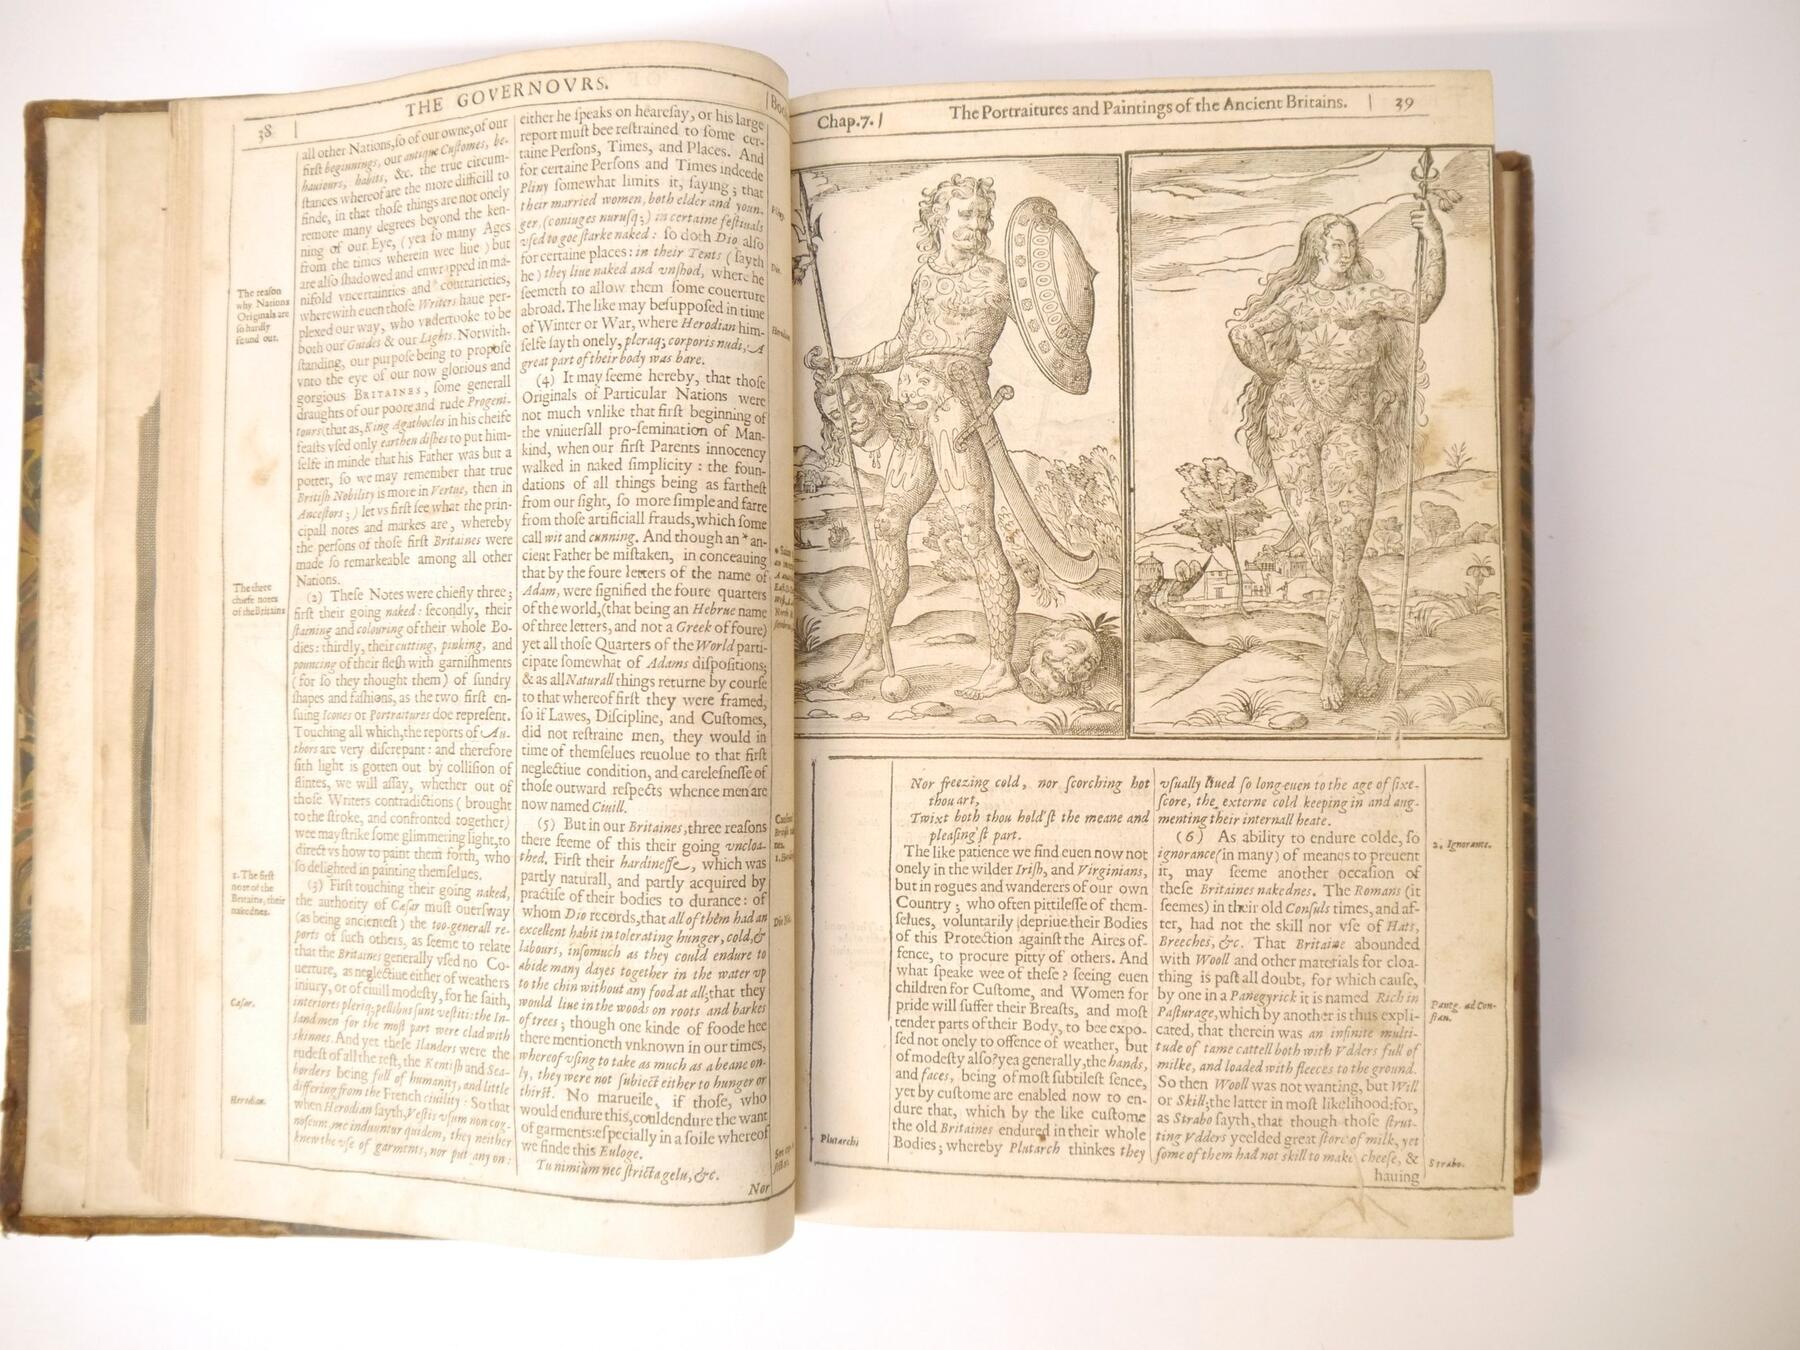 THE GOVERNOVRS.
38
all other Nations, so of our owne, of our
first beginnings, our antique Customes, be-
hauiours, habits, &c. the true circum-
stances whereof are the more difficill to
finde, in that those things are not onely
remote many degrees beyond the ken-
ning of our Eye, (yea so many Ages
from the times wherein wee liue) but
are also shadowed and enwrapped in ma-
nifold vncertainties and contrarieties,
wherewith euen those Writers haue per-
plexed our way, who vndertooke to be
both our Guides & our Lights. Notwith-
standing, our purpose being to propose
vnto the eye of our now glorious and
gorgious BRITAINES, some generall
draughts of our poore and rude Progeni-
tours (that as, King Agathocles in his cheife
feasts vsed only earthen dishes to put him-
selfe in minde that his Father was but a
potter, so we may remember that true
British Nobility is more in Vertue, then in
Ancestors;) let vs first see what the prin-
cipall notes and markes are, whereby
the persons of those first Britaines were
made so remarkeable among all other
Nations.
(2) These Notes were chiefly three;
first their going naked: secondly, their
staining and colouring of their whole Bo-
dies: thirdly, their cutting, pinking, and
pouncing of their flesh with garnishments
(for so they thought them) of sundry
shapes and fashions, as the two first en-
suing Icones or Portraitures doe represent.
Touching all which, the reports of Au-
thors are very discrepant: and therefore
sith light is gotten out by collision of
flintes, we will assay, whether out of
those Writers contradictions (brought
to the stroke, and confronted together)
wee may strike some glimmering light, to
direct vs how to paint them forth, who
so delighted in painting themselues.
(3) First touching their going naked,
the authority of Cæsar must ouersway
(as being ancientest) the too-generall re-
ports of such others, as seeme to relate
that the Britaines generally vsed no Co-
uerture, as neglectiue either of weathers
iniury, or of ciuill modesty, for he saith,
interiores pleriq; pellibus sunt vestiti: the In-
landmen for the most part were clad with
skinnes. And yet these Ilanders were the
rudest of all the rest, the Kentish and Sea-
borders being full of humanity, and little
differing from the French ciuility: So that
when Herodian sayth, Vestis vsum non cog-
noscunt, nec induuntur quidem, they neither
knew the vse of garments, nor put any on:
The reason
why Nations
Originals are
so hardly
found out.
The three
chiefe notes
of the Britains
1. The first
note of the
Britains, their
nakednes.
Cæsar.
Herodian.
either he speaks on hearesay, or his large
report must bee restrained to some cer-
taine Persons, Times, and Places. And
for certaine Persons and Times indeede
Pliny somewhat limits it, saying; that
their married women, both elder and youn-
ger, (coniuges nurusq;) in certaine festiuals
vsed to goe starke naked: so doth Dio also
for certaine places: in their Tents (sayth
he) they liue naked and vnshod, where he
seemeth to allow them some couerture
abroad. The like may be supposed in time
of Winter or War, where Herodian him-
selfe sayth onely, pleraq; corporis nudi, A
great part of their body was bare.
(4) It may seeme hereby, that those
Originals of Particular Nations were
not much vnlike that first beginning of
the vniuersall pro-semination of Man-
kind, when our first Parents innocency
walked in naked simplicity: the foun-
dations of all things being as farthest
from our sight, so more simple and farre
from those artificiall frauds, which some
call wit and cunning. And though an * an-
cient Father be mistaken, in conceauing
that by the foure letters of the name of
Adam, were signified the foure quarters
of the world, (that being an Hebrue name
of three letters, and not a Greek of foure)
yet all those Quarters of the World parti-
cipate somewhat of Adams dispositions;
& as all Naturall things returne by course
to that whereof first they were framed,
so if Lawes, Discipline, and Customes,
did not restraine men, they would in
time of themselues reuolue to that first
neglectiue condition, and carelesnesse of
those outward respects whence men are
now named Ciuill.
(5) But in our Britaines, three reasons
there seeme of this their going vncloa-
thed. First their hardinesse, which was
partly naturall, and partly acquired by
practise of their bodies to durance: of
whom Dio records, that all of them had an
excellent habit in tolerating hunger, cold, &
labours, insomuch as they could endure to
abide many dayes together in the water vp
to the chin without any food at all; that they
would liue in the woods on roots and barkes
of trees; though one kinde of foode hee
there mentioneth vnknown in our times,
whereof vsing to take as much as a beane on-
ly, they were not subiect either to hunger or
thirst. No marueile, if those, who
would endure this, could endure the want
of garments: especially in a soile whereof
we finde this Euloge.
Tu nimium nec stricta gelu, &c.
Nor
Chap.7.
The Portraitures and Paintings of the Ancient Britains.
39
Nor freezing cold, nor scorching hot
thou art,
Twixt both thou hold'st the meane and
pleasing'st part.
The like patience we find euen now not
onely in the wilder Irish, and Virginians,
but in rogues and wanderers of our own
Country; who often pittilesse of them-
selues, voluntarily depriue their Bodies
of this Protection against the Aires of-
fence, to procure pitty of others. And
what speake wee of these? seeing euen
children for Custome, and Women for
pride will suffer their Breasts, and most
tender parts of their Body, to bee expo-
sed not onely to offence of weather, but
of modesty also? yea generally, the hands,
and faces, being of most subtilest sence,
yet by custome are enabled now to en-
dure that, which by the like custome
the old Britaines endured in their whole
Bodies; whereby Plutarch thinkes they
Plutarch:
vsually liued so long euen to the age of sixe-
score, the externe cold keeping in and aug-
menting their internall heate.
(6) As ability to endure colde, so
ignorance (in many) of meanes to preuent
it, may seeme another occasion of
these Britaines nakednes. The Romans (it
seemes) in their old Consuls times, and af-
ter, had not the skill nor vse of Hats,
Breeches, &c. That Britaine abounded
with Wooll and other materials for cloa-
thing is past all doubt, for which cause,
by one in a Panegyrick it is named Rich in
Pasturage, which by another is thus expli-
cated, that therein was an infinite multi-
tude of tame cattell both with Vdders full of
milke, and loaded with fleeces to the ground.
So then Wooll was not wanting, but Will
or Skill; the latter in most likelihood: for,
as Strabo sayth, that though those strut-
ting Vdders yeelded great store of milk, yet
some of them had not skill to make cheese, &
hauing
2. Ignorance.
Paneg. ad Con-
stan.
Strabo.